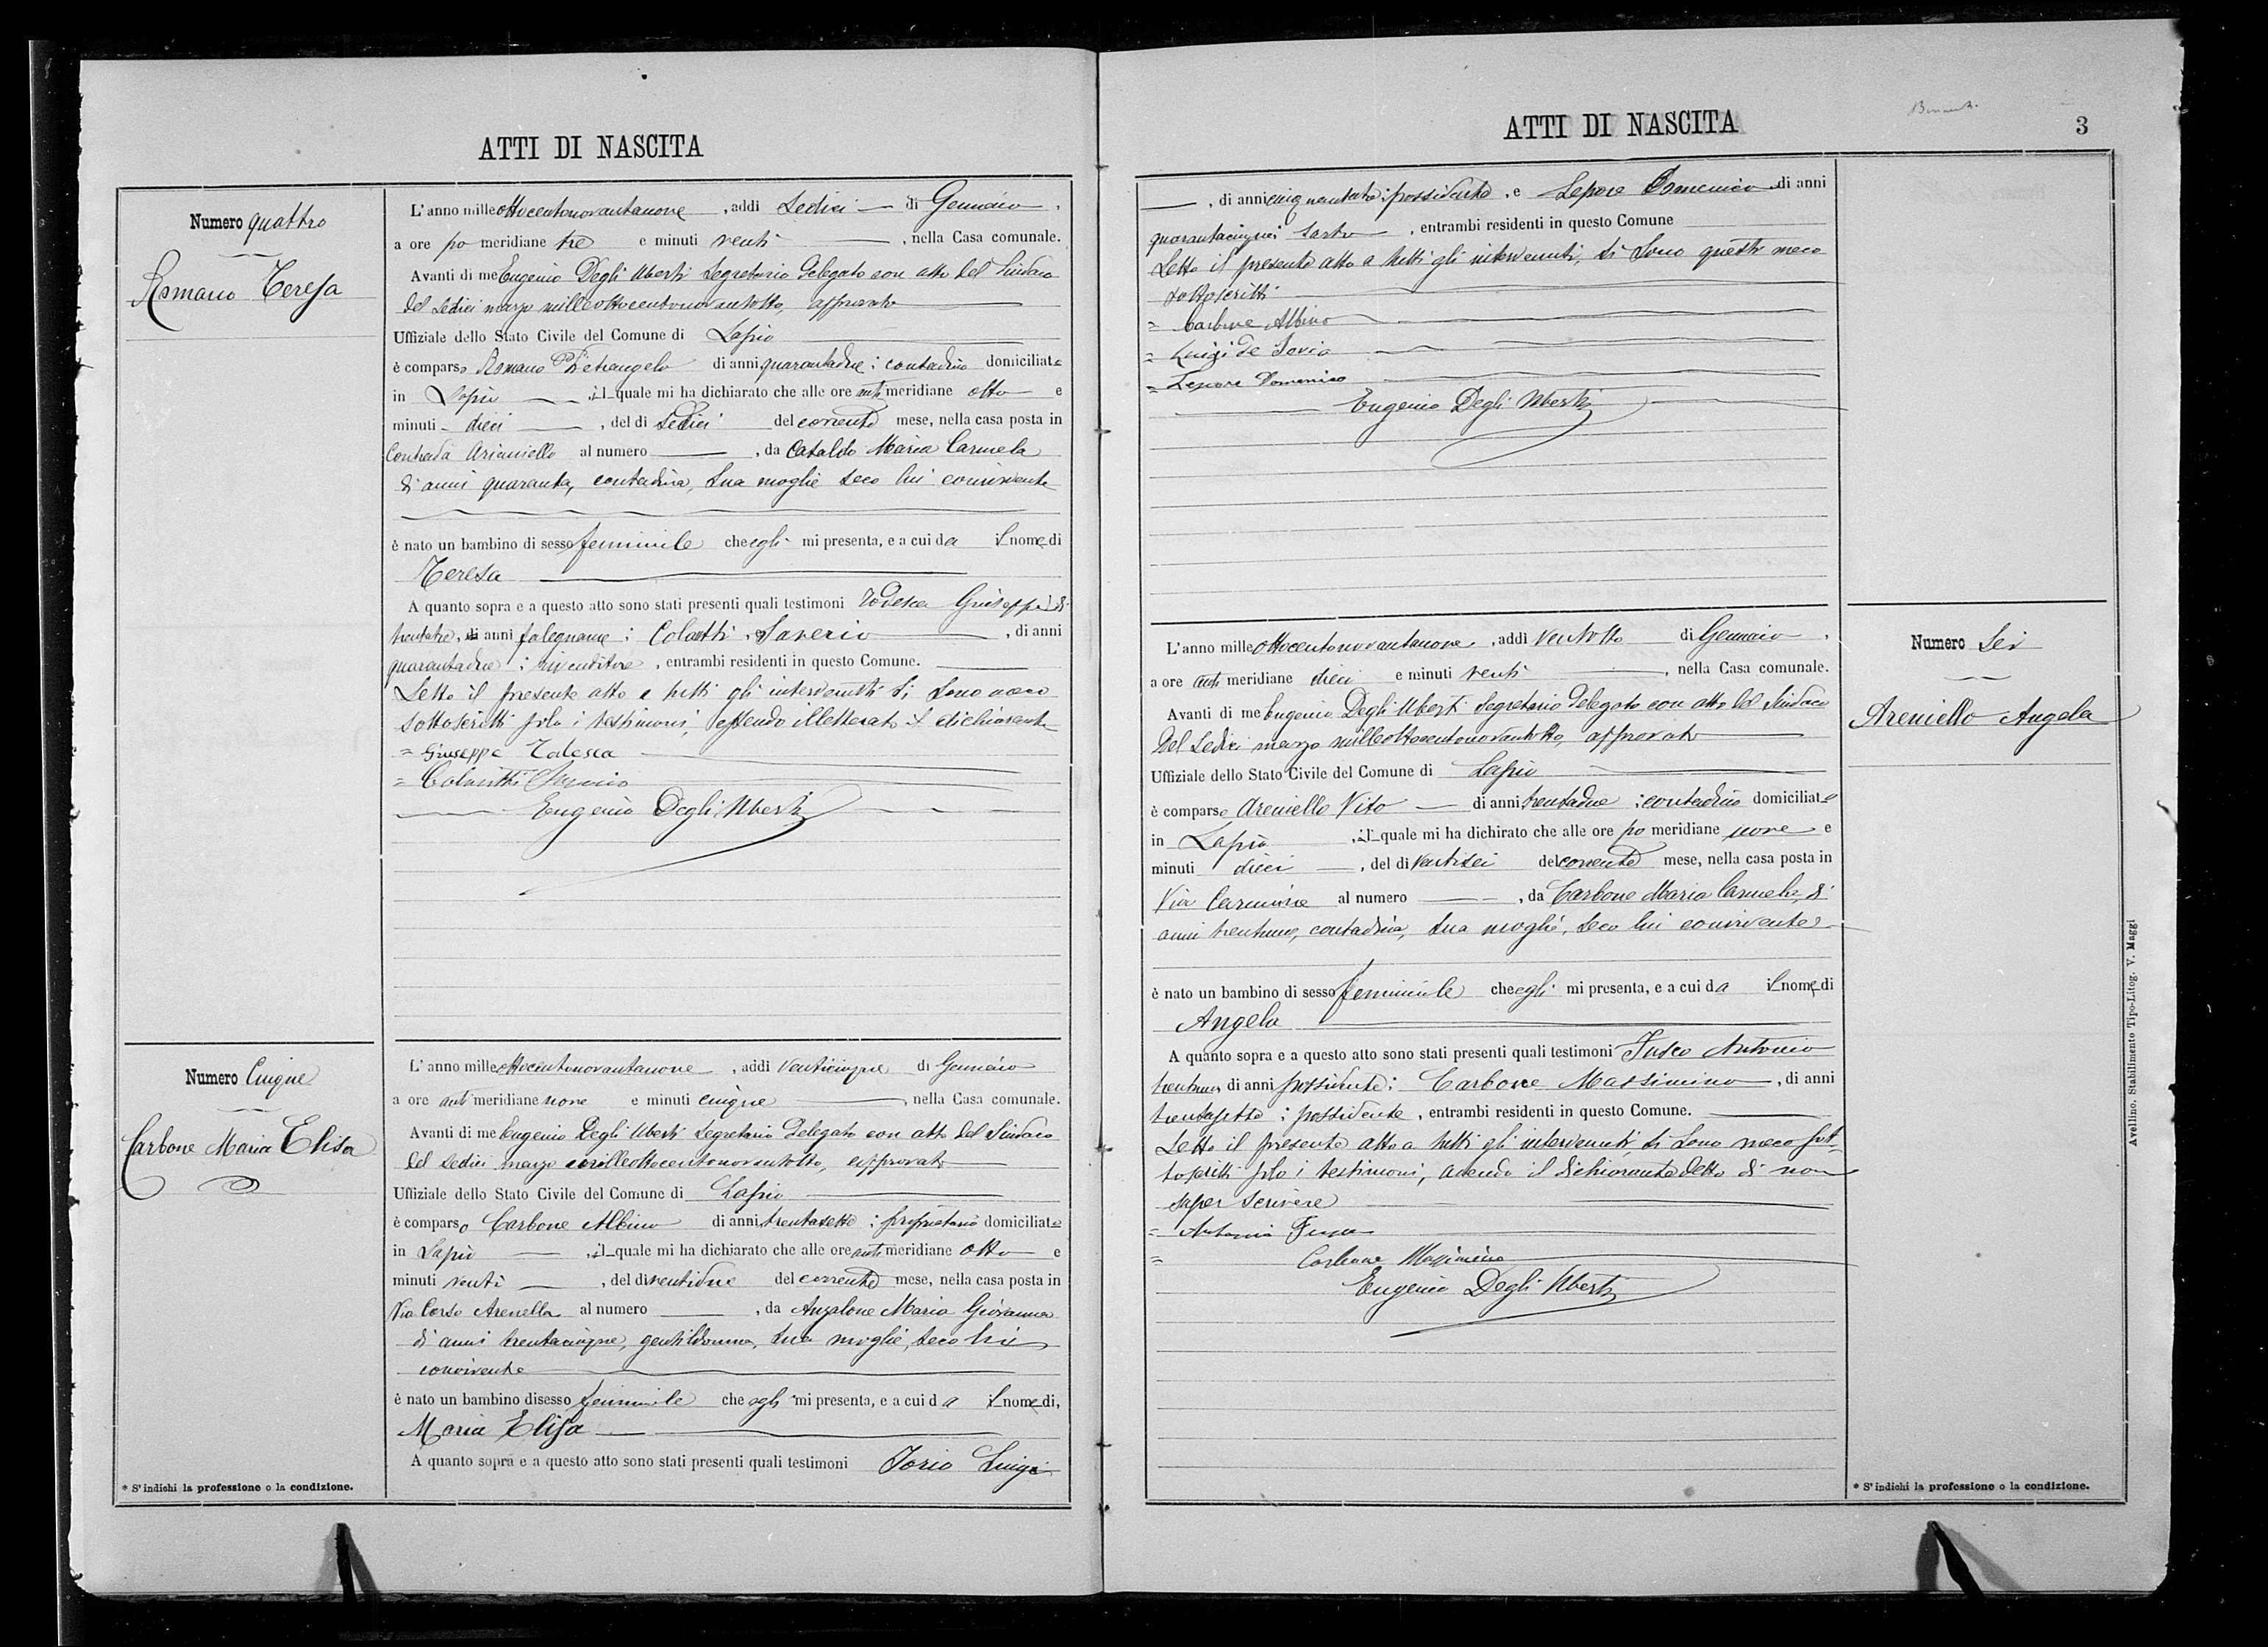 ATTI DI NASCITA
Numero quattro
Romano Teresa
L'anno milleottocentonovantanove, addì sedici di Gennaio,
a ore po meridiane tre e minuti venti, nella Casa comunale.
Avanti di me Eugenio Degli Uberti Segretario delegato con atto del Sindaco
del sedici marzo milleottocentonovantotto, approvato
Uffiziale dello Stato Civile del Comune di Lapio
è comparso Romano Pietrangelo di anni quarantadue; contadino domiciliato
in Lapio, il quale mi ha dichiarato che alle ore anti meridiane otto e
minuti dieci, del dì sedici del corrente mese, nella casa posta in
Contrada Arianiello al numero, da Cataldo Maria Carmela
di anni quaranta, contadina, sua moglie seco lui convivente
è nato un bambino di sesso femminile che egli mi presenta, e a cui da il nome di
Teresa
A quanto sopra e a questo atto sono stati presenti quali testimoni Todesca Giuseppe di
trentatre, di anni falegname; Colucitti Saverio, di anni
quarantadue; rivenditore, entrambi residenti in questo Comune.
Letto il presente atto a tutti gli intervenuti si sono meco
sottoscritti solo i testimoni, essendo illetterato il dichiarante
= Giuseppe Todesca
= Colucitti Saverio
Eugenio Degli Uberti
Numero Cinque
Carbone Maria Elisa
L'anno milleottocentonovantanove, addì venticinque di Gennaio
a ore anti meridiane nove e minuti cinque, nella Casa comunale.
Avanti di me Eugenio Degli Uberti Segretario delegato con atto del Sindaco
del sedici marzo milleottocentonovantotto, approvato
Uffiziale dello Stato Civile del Comune di Lapio
è comparso Carbone Albino di anni trentasette; proprietario domiciliato
in Lapio, il quale mi ha dichiarato che alle ore anti meridiane otto e
minuti venti, del dì ventidue del corrente mese, nella casa posta in
Via Corso Arenella al numero, da Anzalone Maria Giovanna
di anni trentacinque, gentildonna, sua moglie, seco lui
convivente
è nato un bambino di sesso femminile che egli mi presenta, e a cui da il nome di,
Maria Elisa
A quanto sopra e a questo atto sono stati presenti quali testimoni Iorio Luigi
* S'indichi la professione o la condizione.
ATTI DI NASCITA
3
, di anni cinquantatre; possidente, e Lepore Domenico di anni
quarantacinque; sarto, entrambi residenti in questo Comune
Letto il presente atto a tutti gli intervenuti, si sono questi meco
sottoscritti
= Carbone Albino
= Luigi de Iorio
= Lepore Domenico
Eugenio Degli Uberti
Numero Sei
Areniello Angela
L'anno milleottocentonovantanove, addì ventotto di Gennaio,
a ore anti meridiane dieci e minuti venti, nella Casa comunale.
Avanti di me Eugenio Degli Uberti Segretario delegato con atto del Sindaco
del sedici marzo milleottocentonovantotto, approvato
Uffiziale dello Stato Civile del Comune di Lapio
è comparso Areniello Vito di anni trentadue; contadino domiciliato
in Lapio, il quale mi ha dichirato che alle ore po meridiane nove e
minuti dieci, del dì ventisei del corrente mese, nella casa posta in
Via Carmine al numero, da Carbone Maria Carmela, di
anni trentuno, contadina, sua moglie, seco lui convivente
è nato un bambino di sesso femminile che egli mi presenta, e a cui da il nome di
Angela
A quanto sopra e a questo atto sono stati presenti quali testimoni Fusco Antonio
trentuno, di anni possidente; Carbone Massimino, di anni
trentasette; possidente, entrambi residenti in questo Comune.
Letto il presente atto a tutti gli intervenuti, si sono meco sot-
toscritti solo i testimoni, avendo il dichiarante detto di non
saper scrivere
= Antonio Fusco
= Carbone Massimino
Eugenio Degli Uberti
* S'indichi la professione o la condizione.
Avellino. Stabilimento Tipo-Litog. V. Maggi